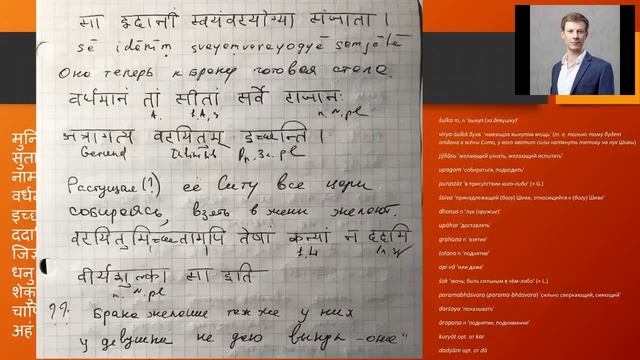 सा इदानीं स्वयंवरयोग्या संजाता ।
sā idānīṃ svayaṃvarayogyā saṃjātā
Она теперь к браку готовая стала.
वर्धमानं तां सीतां सर्वे राजानः
n. N. pl
अत्रागत्य वरयितुम् इच्छन्ति ।
Gerund Pr, 3л. pl
Растущая(?) её Ситу все цари
собираясь, взять в жены желают.
तेषां कन्यां न ददामि
वीर्यशुल्का सा इति
?? Брака желание также у них
у девушки не даю
мुनि
सुता
नाम
वर्धम
इच्छ
ददा
जिज्ञ
धनु
शेकु
चापि
अहं
śulka m, n 'выкуп (за девушку)'
vīrya-śulkā букв. 'имеющая выкупом мощь' (т. е. только тому будет
отдана в жёны Сита, у кого хватит силы натянуть тетиву на лук Шивы)
jijñāsu 'желающий узнать, желающий испытать'
upagam 'собираться, подходить'
puraszāt 'в присутствии кого-либо' (+ G.)
śaiva 'принадлежащий (богу) Шиве, относящийся к (богу) Шиве'
dhanus n 'лук (оружие)'
upāhar 'доставлять'
grahaṇa n 'взятие'
tolana n 'поднятие'
api vā 'или даже'
śak 'мочь; быть сильным в чём-либо' (+ L.)
paramabhāsvara (parama-bhāsvara) 'сильно сверкающий, сияющий'
darśaya 'показывать'
āropaṇa n 'поднятие, поднимание'
kuryāt opt. от kar
dadyām opt. от dā